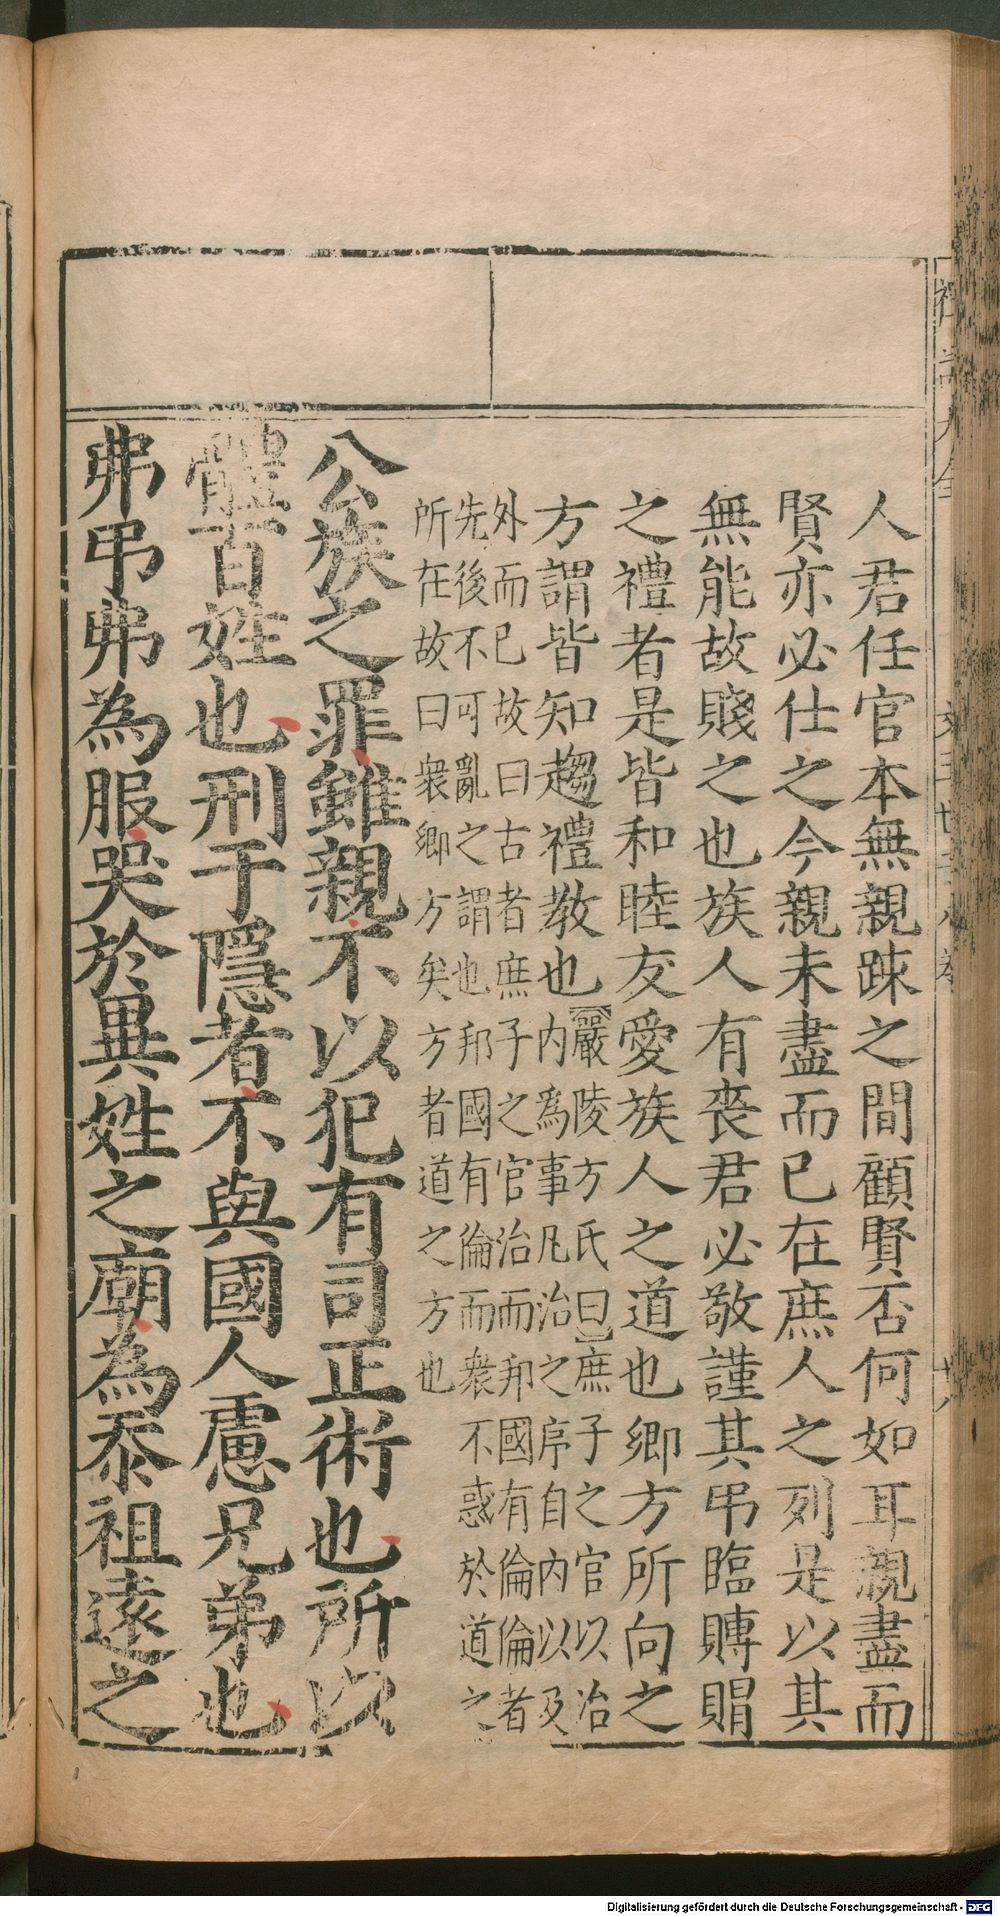 人君任官本無親踈之間顧賢否何如耳親盡而
賢亦必仕之今親未盡而已在庶人之列是以其
無能故賤之也族人有喪君必敬謹其弔臨賻賵
之禮者是皆和睦友愛族人之道也鄉方所向之
方謂皆知趨禮教也【嚴陵方氏曰】庶子之官以治
内爲事凡治之序自内以及
外而已故曰古者庶子之官治而邦國有倫倫者
先後不可亂之謂也邦國有倫而衆不惑於道之
所在故曰衆鄉方矣方者道之方也
公族之罪雖親不以犯有司正術也所以
體百姓也刑于隱者不與國人慮兄弟也
弗弔弗為服哭於異姓之廟為忝祖遠之
Digitalisierung gefördert durch die Deutsche Forschungsgemeinschaft - DFG